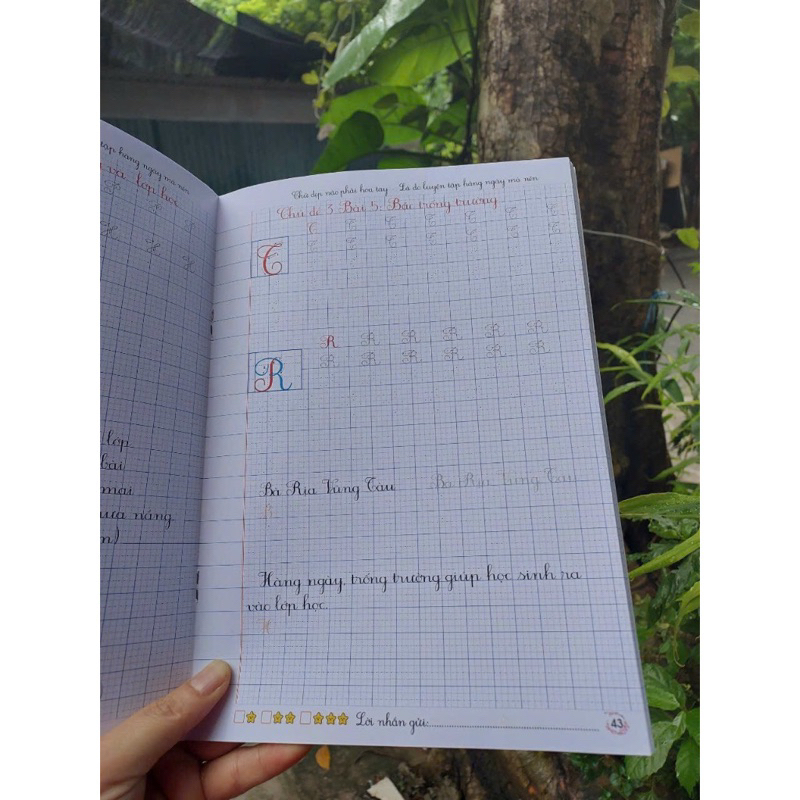 tập hàng ngày mà nên
và lớp học
lớp
bài
mai
ưa nắng
n)
Chữ đẹp nào phải hoa tay - Là do luyện tập hàng ngày mà nên
Chủ đề 3 Bài 5: Bác trống trường
C C C C C C C
C C C C C C C
C
R R R R R R
R R R R R R
R
Bà Rịa Vũng Tàu Bà Rịa Vũng Tàu
B
Hàng ngày, trống trường giúp học sinh ra
vào lớp học.
H
Lời nhắn gửi:
43